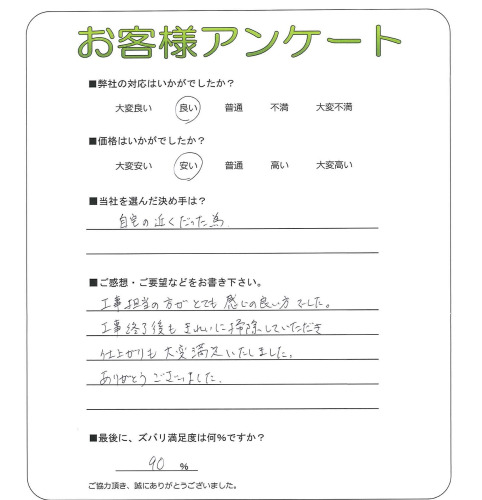 お客様アンケート
■弊社の対応はいかがでしたか？
大変良い 良い 普通 不満 大変不満
■価格はいかがでしたか？
大変安い 安い 普通 高い 大変高い
■当社を選んだ決め手は？
自宅の近くだった為
■ご感想・ご要望などをお書き下さい。
工事担当の方がとても感じの良い方でした。
工事終了後もきれいに掃除していただき
仕上がりも大変満足いたしました。
ありがとうございました。
■最後に、ズバリ満足度は何％ですか？
90 ％
ご協力頂き、誠にありがとうございました。